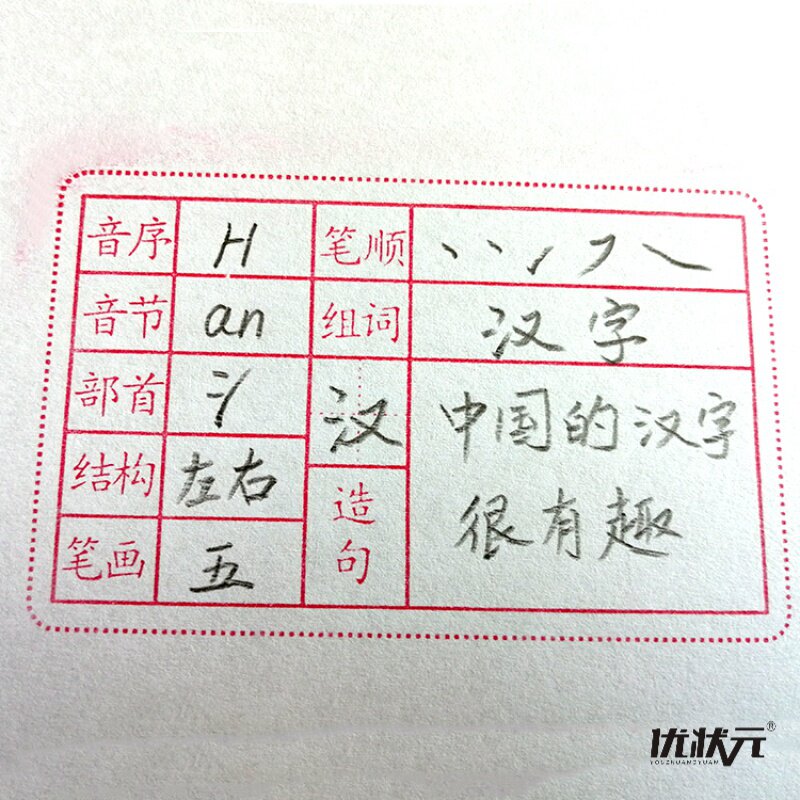 音序 H 笔顺 丶丶㇀フ㇏
音节 an 组词 汉字
部首 氵 汉 中国的汉字
结构 左右 造句 很有趣
笔画 五
优状元®
YOUZHUANGYUAN